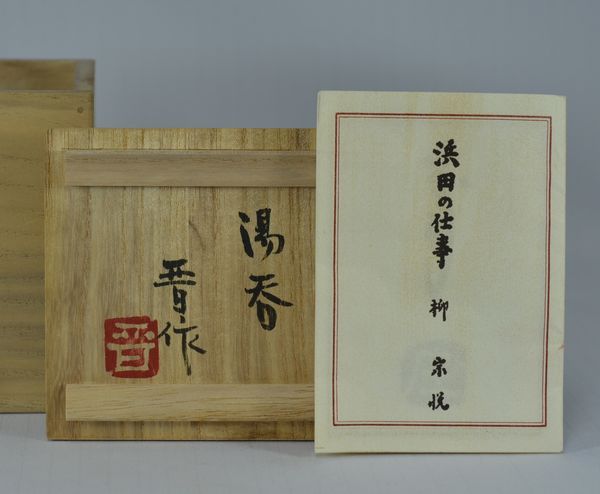 湯呑
晋作
晋
浜田の仕事 柳 宗悦